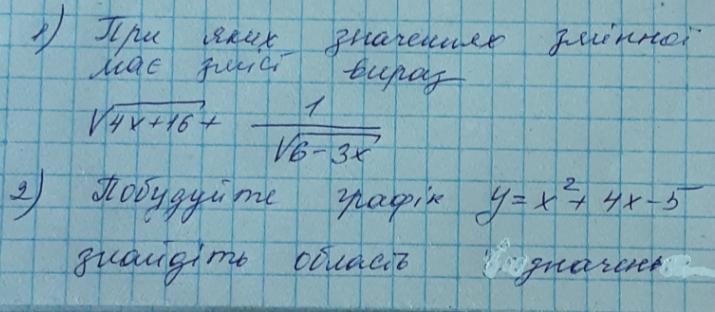 1) При яких значеннях змінної
має зміст вираз
√4x+16 + 1/√6-3x
2) Побудуйте графік y=x²+4x-5
знайдіть область